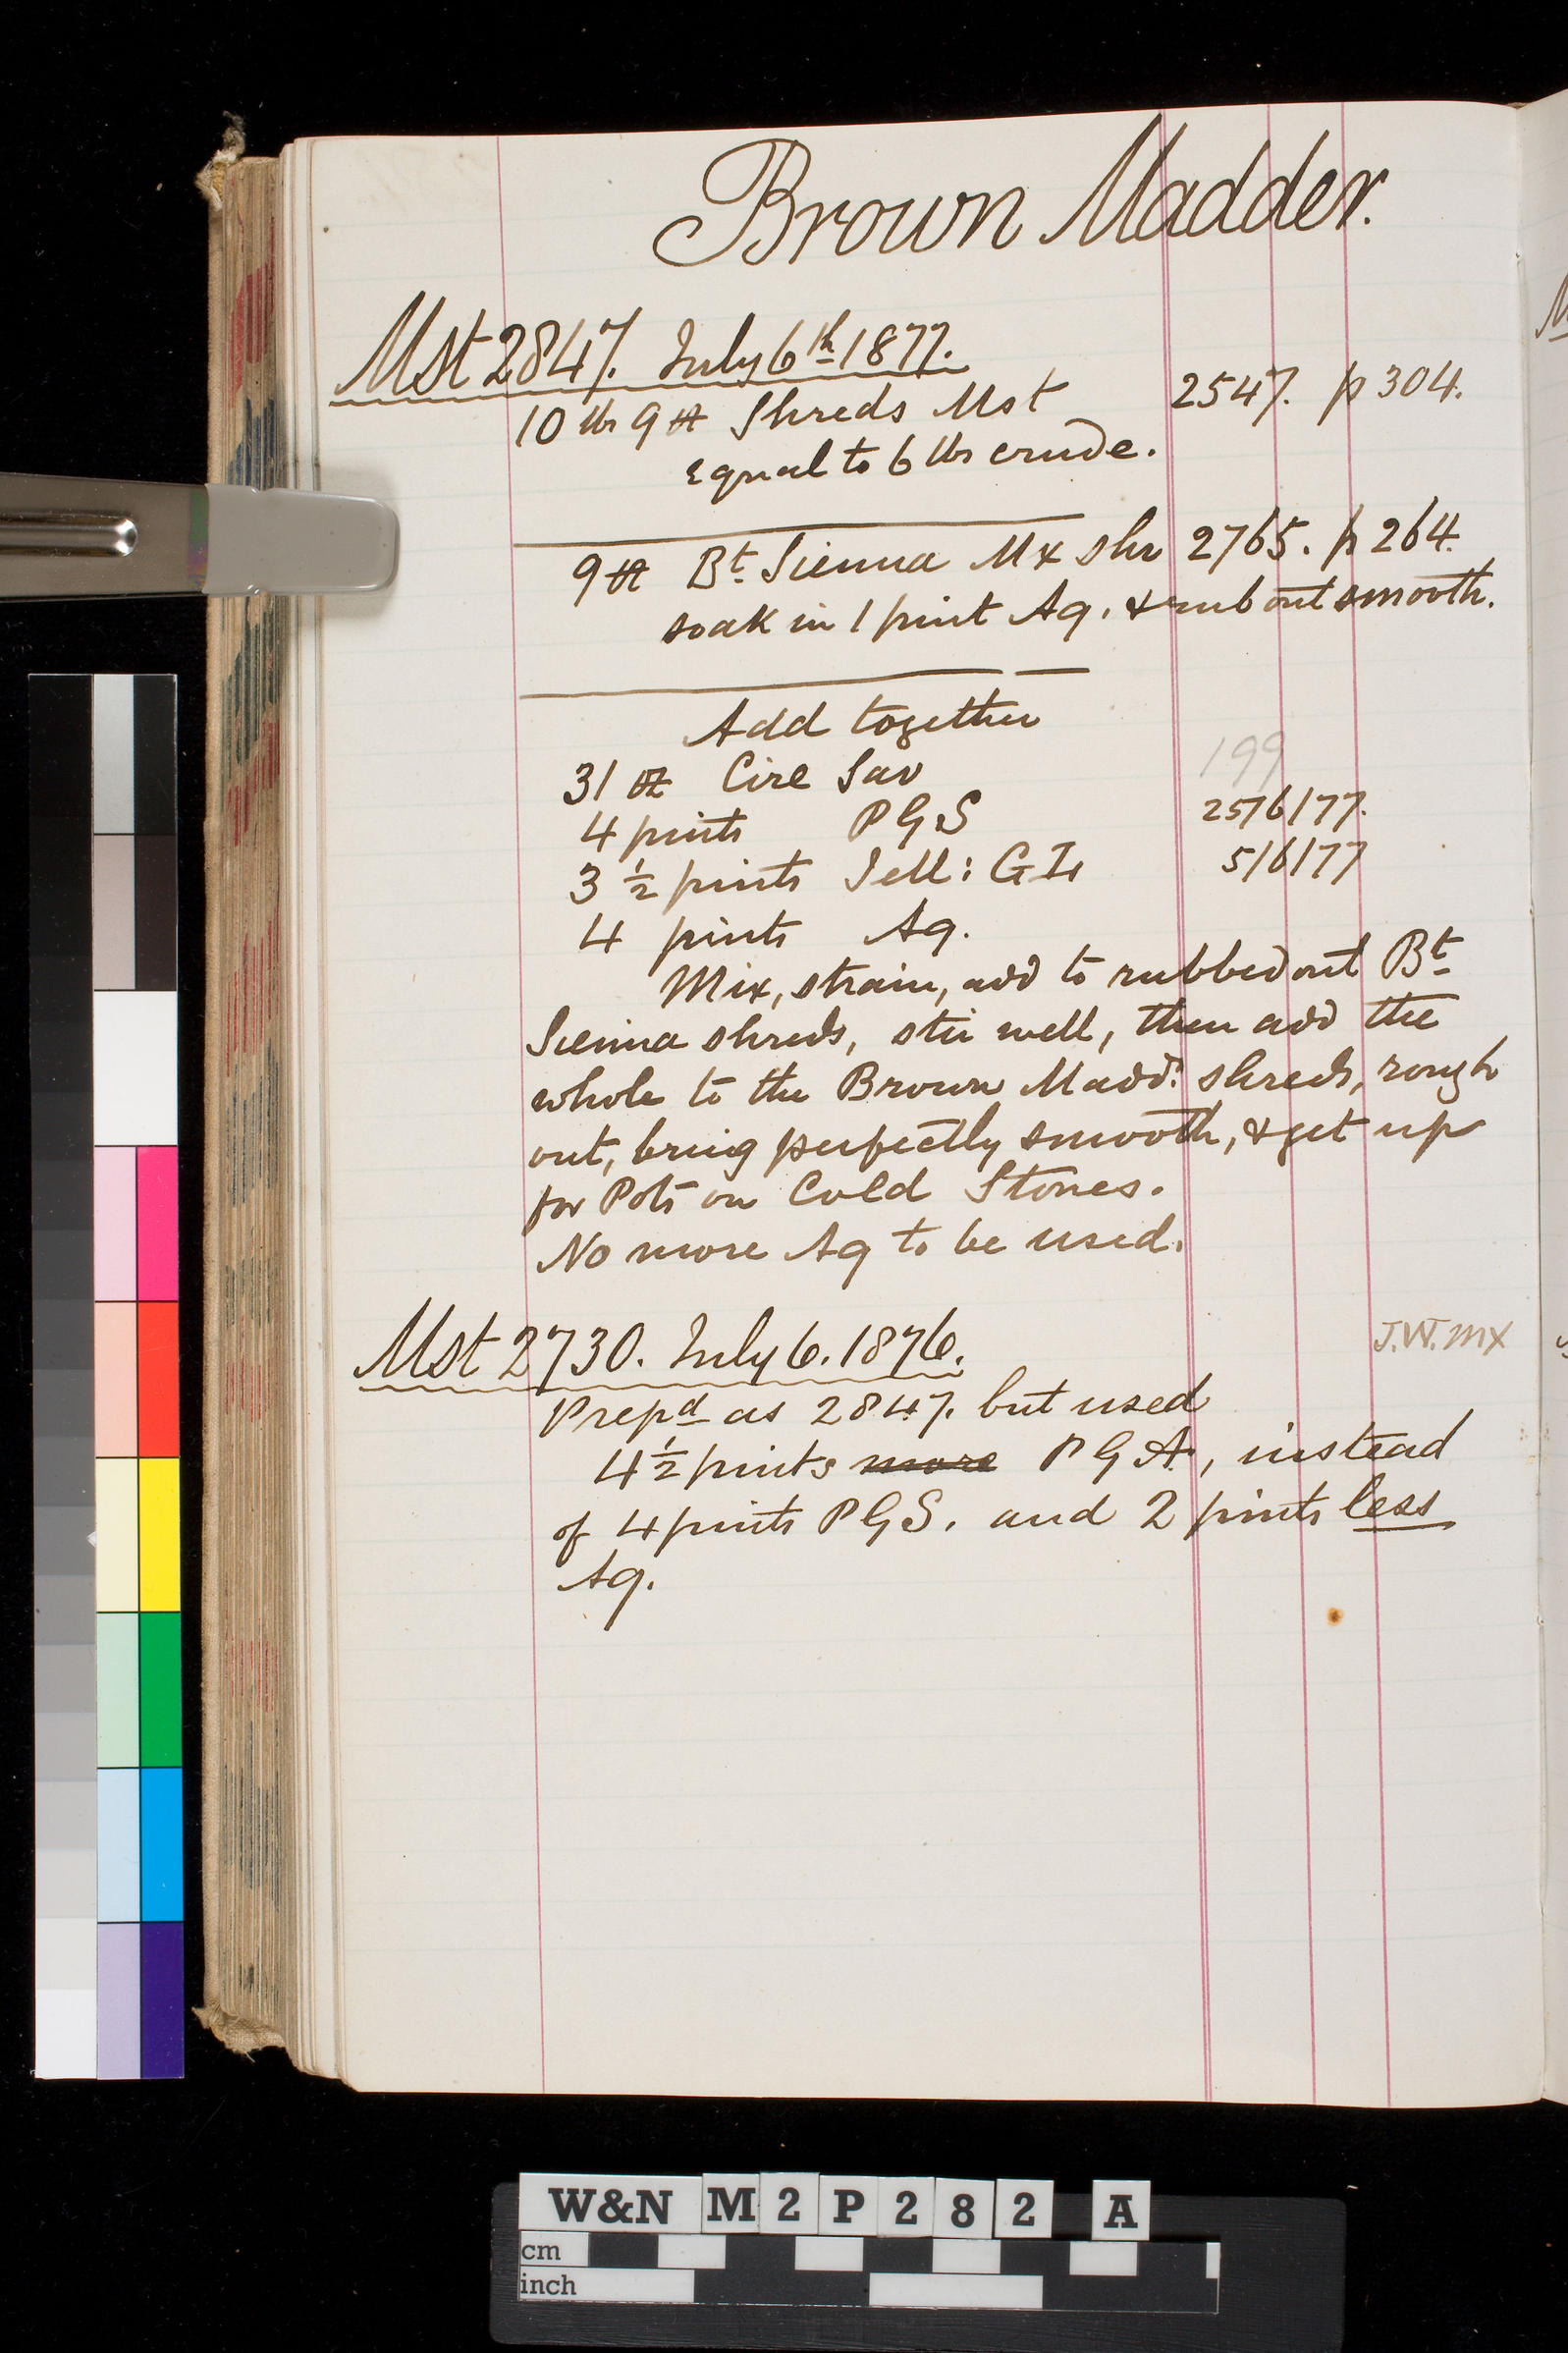 Brown Madder.
Mst 2847. July 6th 1877.
10 lbs 9 oz Shreds Mst 2547. p 304.
equal to 6 lbs crude.
9 oz Bt. Sienna Mx shr 2765. p 264.
soak in 1 pint Aq. & rub out smooth.
Add together
199
31 oz Cire Sav
4 pints PGS 25/6/77.
3 1/2 pints Jell: G I, 5/6/77
4 pints Aq.
Mix, strain, add to rubbed out Bt
Sienna shreds, stir well, then add the
whole to the Brown Madd: shreds, rough
out, bring perfectly smooth, & get up
for Pots on Cold Stones.
No more Aq to be used.
Mst 2730. July 6. 1876.
J.W. mx
Prepd as 2847. but used
4 1/2 pints more PGA, instead
of 4 pints PGS. and 2 pints less
Aq.
W&N M2P282 A
cm
inch